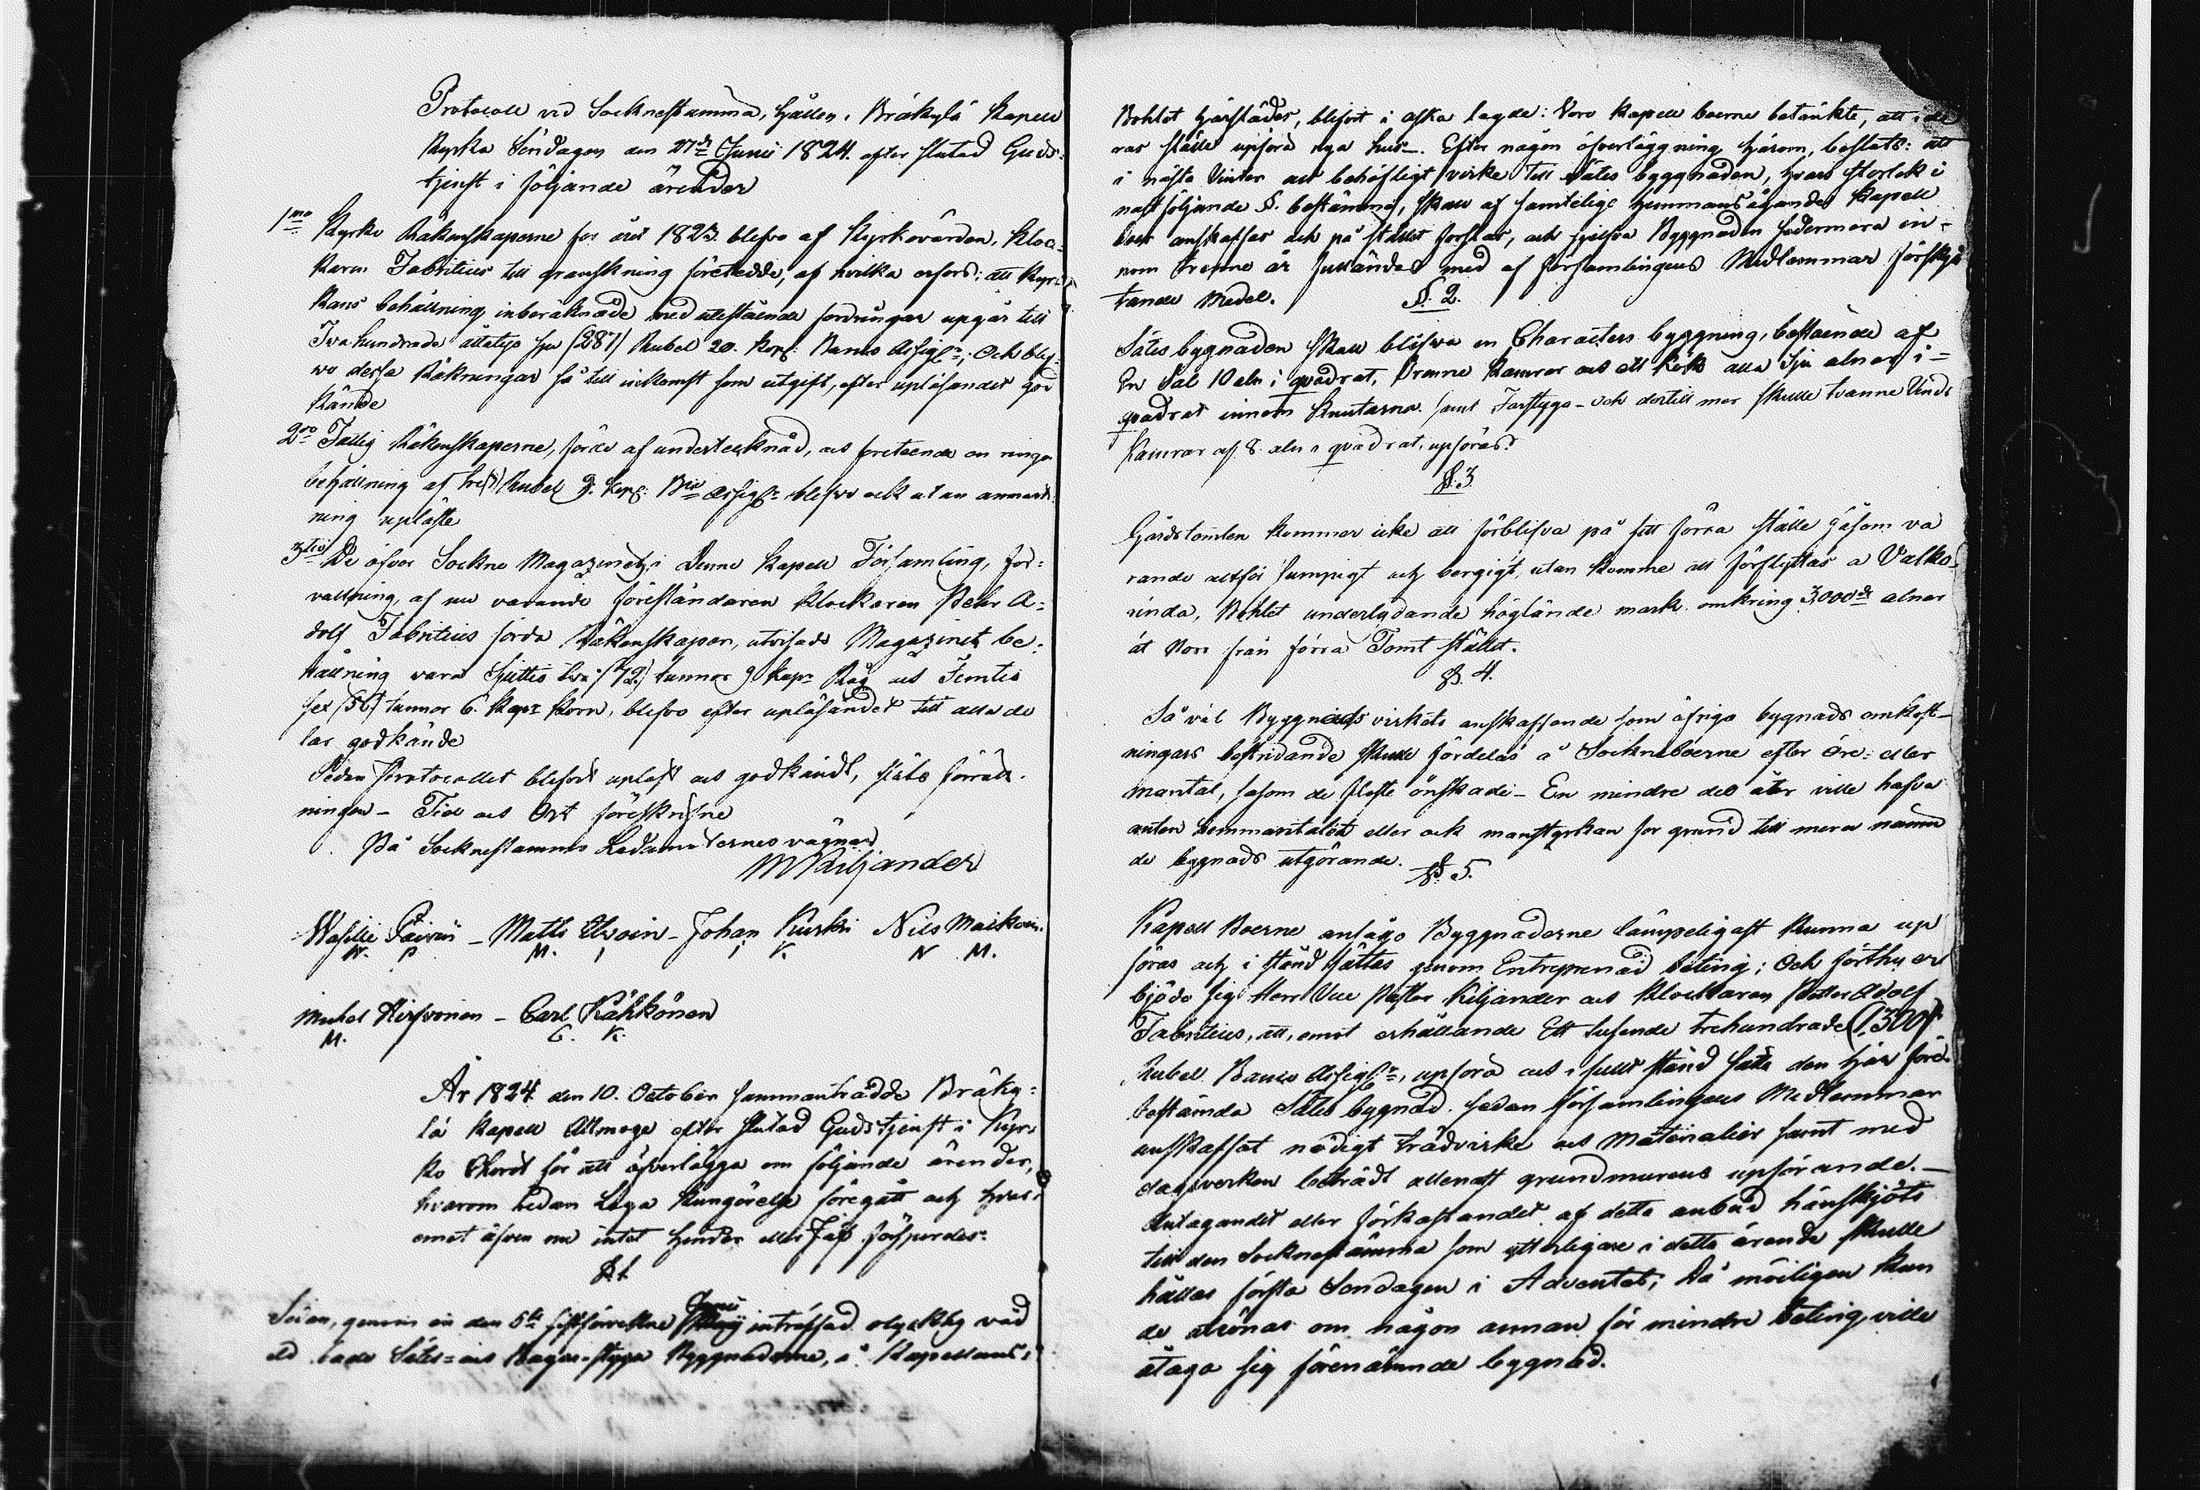 Protocoll vid Socknestamma, hållen i Bräkylä Kapell
Kyrka Söndagen den 27de Junii 1824. efter slutad Guds-
tjenst i följande ärender
1mo Kyrko Räkenskaperne för året 1823. blefvo af Kyrkovärden, Kloc-
karen Fabritius till granskning företedde, af hvilka erfors: att Kyr-
kans behållning, inberäknade med utestående fordringar upgår till
Tvåhundrade åttatijo sju (287) Rubel 20. Kop: Banco Assign:; Och blef-
vo dessa Räkningar så till inkomst som utgift, efter upläsandet god
kände
2do Fattig Räkenskaperne, förde af undertecknad, och företeende en ringa
behållning af tre (3) Rubel 9. Kop: Bco Assign: blefvo ock utan anmärk
ning upläste
3tio De öfver Sockne Magazinet i denne Kapell Församling, för-
valtning, af nu varande föreståndaren Klockaren Pehr A-
dolf Fabritius förda Räkenskaper, utvisade Magazinets be-
hållning vara Sjuttio två (72) tunnor 9 Kapr Råg och Femtio
sex (56) tunnor 6. Kapr Korn, blefvo efter upläsandet till alla de
lar godkände
Sedan Protocollet blifvit upläst och godkändt, slöts förrätt-
ningen – Tid och Ort föreskrifne
På Socknestammo Ledamöternes vägnar
M Kiljander
Wasilli Päiviö – Matts Olkoin – Johan Kurki Nils Maikoin
W. P. M. I. K. N M.
Michel Hirvonen – Carl Kähkönen
M. C. K.
År 1824 den 10. October sammanträdde Bräky-
lä Kapell Allmoge efter slutad Gudstjenst i Kyr-
ko Choret för att öfverlägga om följande ärender,
hvarom sedan Laga Kungörelse föregått och hvar-
emot äfven nu intet hinder eller Jäf försperdes.
§. 1.
Sedan, genom en den 5te sistförvekne Junii inträffad olycklig våd
eld både Sätes- och Bagar-stuga Byggnaderne, å Kapellans-
Bohlet härstädes, blifvit i aska lagde: Voro Kapell boerne betänkte, att i de
ras ställe upföra nya hus. Efter någon öfverläggning härom, beslöts: att
i nästa Vinter allt behöfligt virke till Sätes byggnaden, hvars storlek i
nästföljande §. bestämmes, skall af samtelige hemmansägande Kapell
boer anskaffas och på stället forslas, och sjelfva Byggnaden sedermera in-
nom trenne år fulländas med af Församlingens Medlemmar försky
tande Medel.
§. 2.
Sätes bygnaden skall blifva en Characters byggning, bestående af
En Sal 10 aln i quadrat, Trenne Kamrar och ett Kök alla sju alnar i-
quadrat innom Knutarne. samt Farstuga – och dertill mer skulle tvänne Vinds
Kamrar af 8. aln i quadrat, upföras.
§. 3
Gårdstomten kommer icke att förblifva på sitt förra ställe såsom va
rande alltför sumpigt och bergigt, utan komme att förflyttas a Valko
rinda, Bohlet underlydande höglände mark omkring 3,000de alnar
åt Norr från förra Tomt stället.
§. 4.
Så väl Byggnads virkets anskaffande som öfrige bygnads omkost-
ningars bestridande skulle fördelas å Sockneboerne efter öre- eller
mantal, såsom de fleste önskade – En mindre del åter ville hafva
anten hemmantalet eller ock manstyrkan för grund till mera nämn
de byggnads utgörande.
§. 5.
Kapell Boerne ansågo Byggnaderne lämpeligast kunna up
föras och i stånd sättas genom Entreprenad beting; Och förthy er
bjödo sig Herr Vice Pastor Kiljander och Klockaren Petter Adolf
Fabritius, att, emot erhållande Ett tusende trehundrade (1,300).
Rubel Banco Assign:, upföra och i fullt stånd sätta den här före
bestämda Sätes bygnad. Sedan församlingens Medlemmar
anskaffat nödigt trädvirke och Materialier samt med
dagsverken beträdt allenast grundmurens upförande.–
Antagandet eller förkastandet af detta anbud hänskjöts
till den Socknestämma som ytterligare i detta ärende skulle
hållas första Söndagen i Adventet; Då möiligen kun
de utrönas om någon annan för mindre beting, ville
åtaga sig förenämnde bygnad.